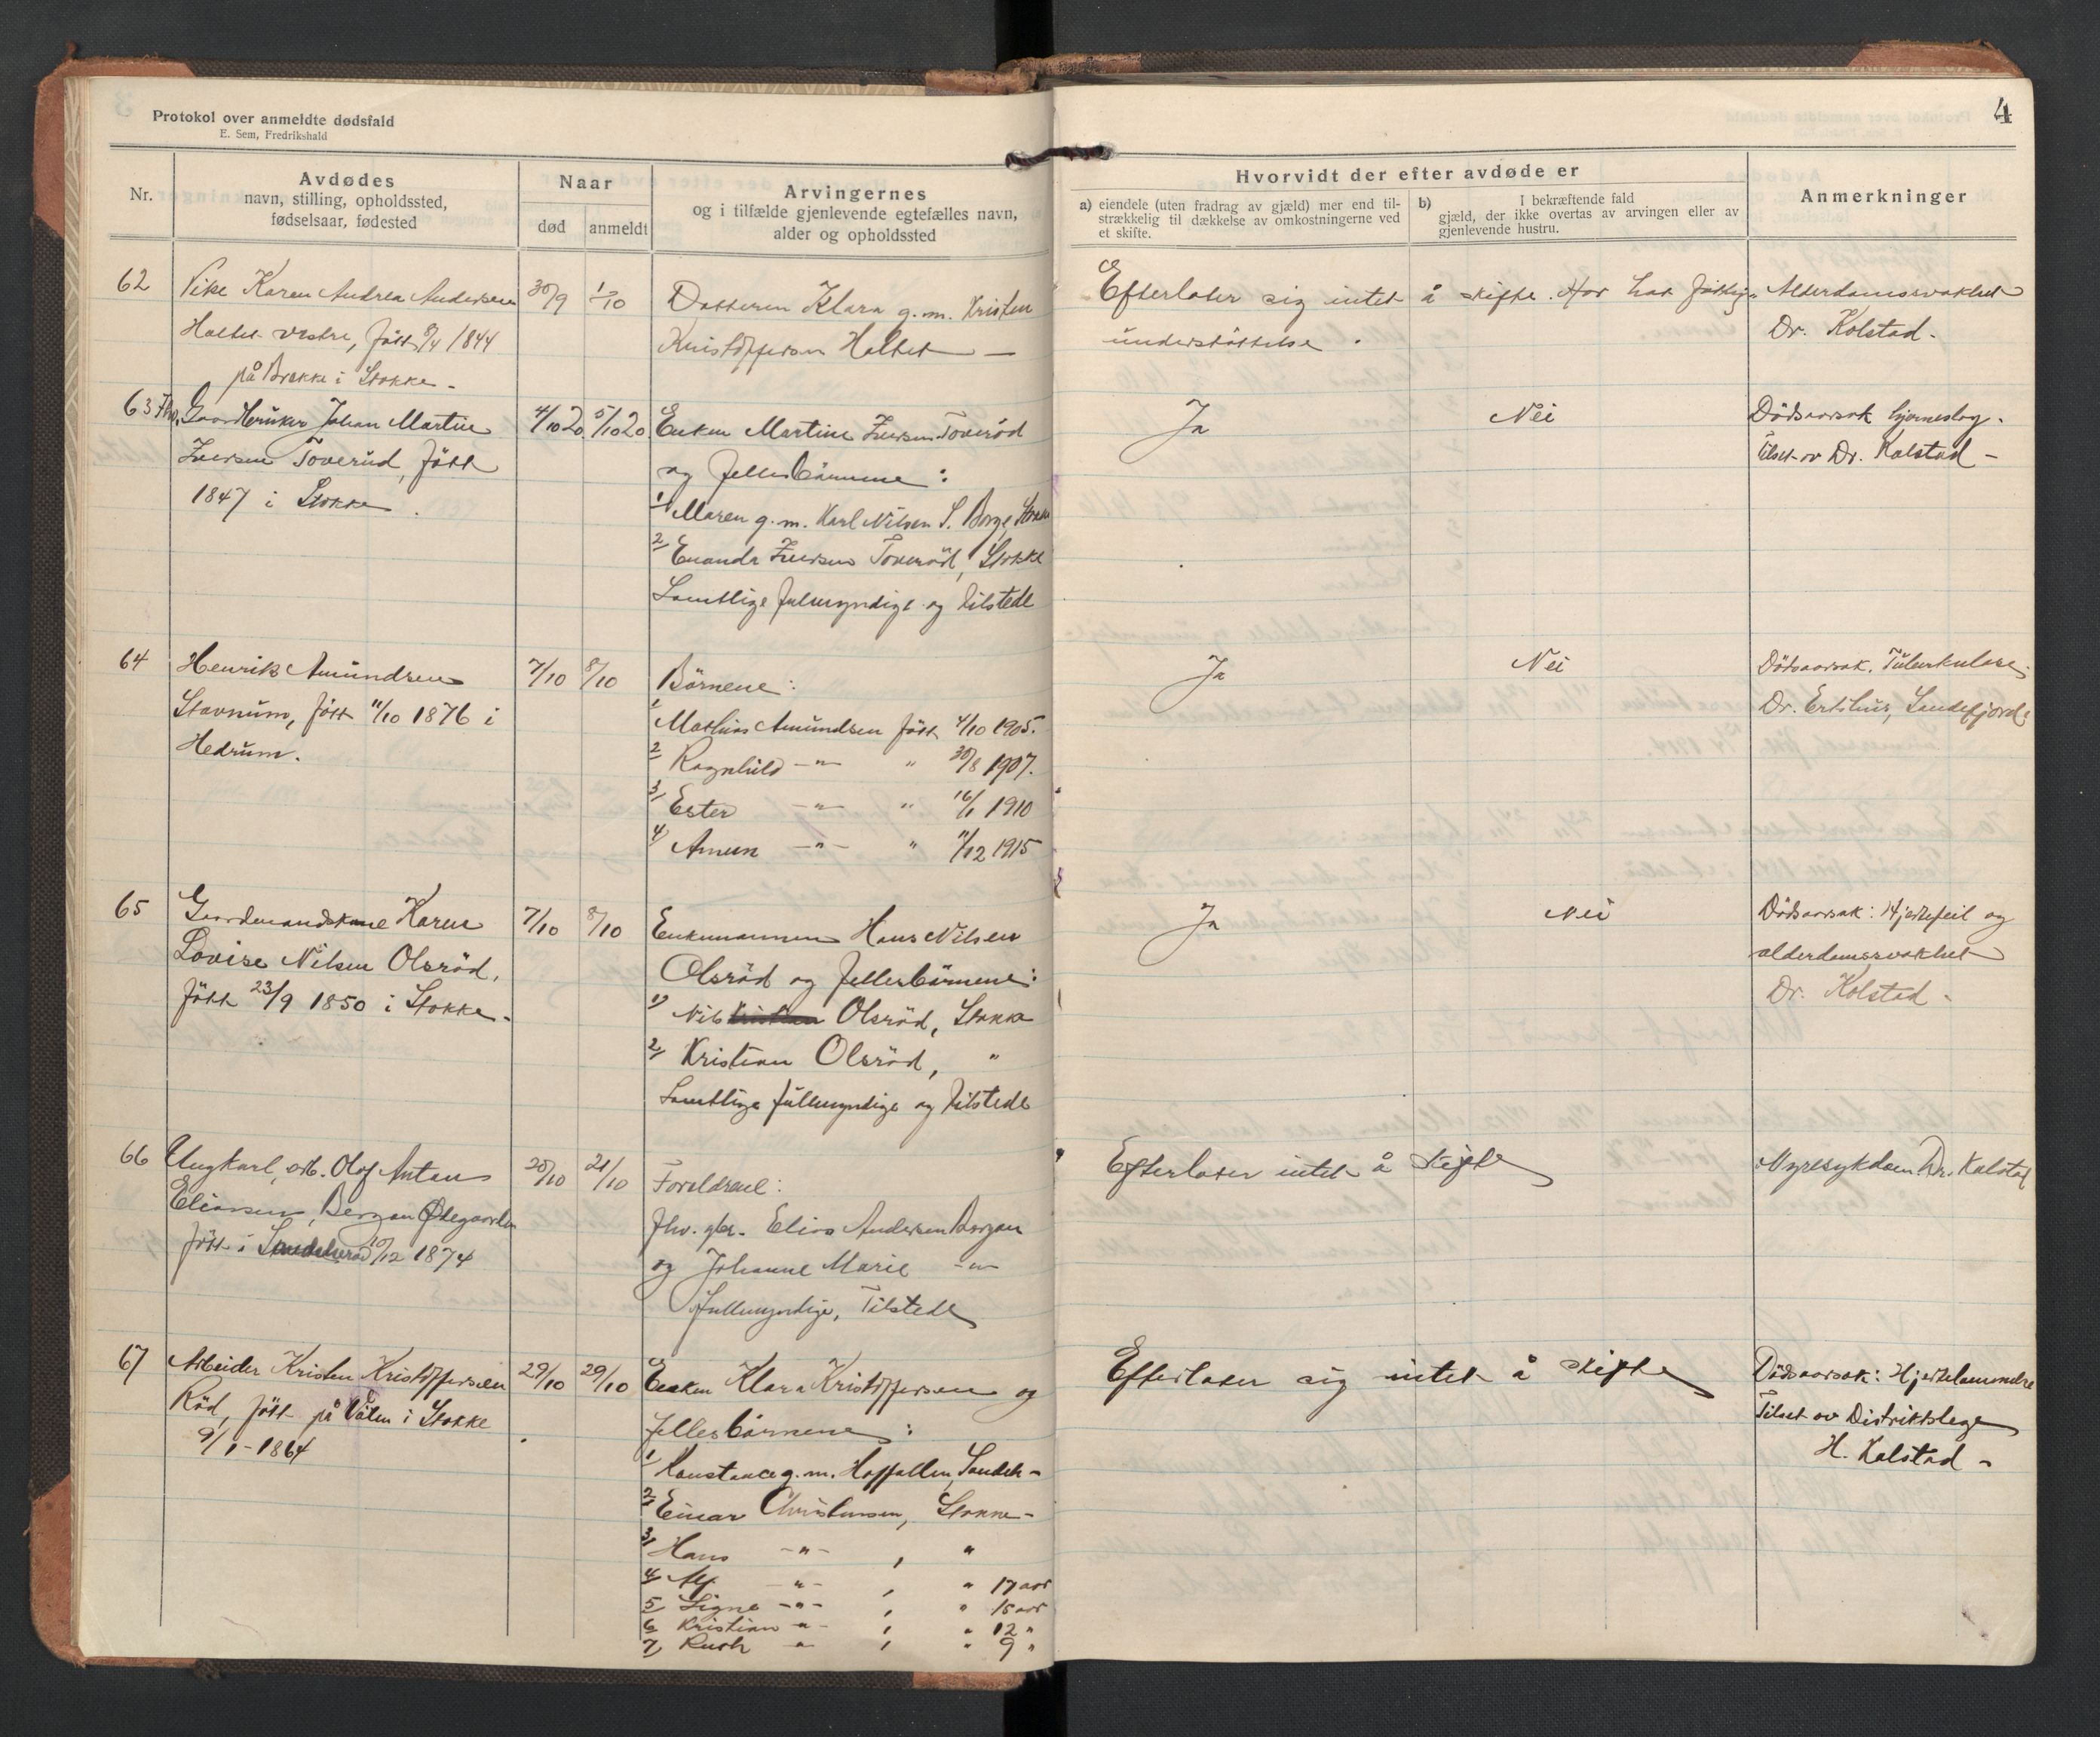 Protokol over anmeldte dødsfald
E. Sem, Fredrikshald
4
Nr.
Avdødes
navn, stilling, opholdssted,
fødselsaar, fødested
Naar
død
anmeldt
Arvingernes
og i tilfælde gjenlevende egtefælles navn,
alder og opholdssted
Hvorvidt der efter avdøde er
a) eiendele (uten fradrag av gjæld) mer end til-
strækkelig til dækkelse av omkostningerne ved
et skifte.
b) I bekræftende fald
gjæld, der ikke overtas av arvingen eller av
gjenlevende hustru.
Anmerkninger
62
Pike Karen Andrea Andersen
Holtet vestre, født 8/4 1844
på Brekke i Stokke -
30/9
1/10
Datteren Klara g. m. Kristen
Kristoffersen Holtet -
Efterlater sig intet å skifte. Har hat fattig-
understøttelse.
Alderdomssvakhet
Dr. Kolstad -
63
Fhv. Gaardbruker Johan Martin
Iversen Toverud, født
1847 i Stokke.
4/10 20
5/10 20
Enken Martine Iversen Toverød
og fellesbarnene:
1/ Maren g. m. Karl Nilsen S. Borge, Stokke
2/ Enanda Iversen Toverød, Stokke
Samtlige fulmyndige og tilstede
Ja
Nei
Dødsaarsak hjerneslag.
Tilset av Dr. Kolstad -
64
Henrik Amundsen
Stavnum, født 11/10 1876 i
Hedrum.
7/10
8/10
Børnene:
1 Mathias Amundsen født 4/10 1905.
2 Ragnhild -"- " 30/8 1907.
3/ Ester -"- " 16/1 1910
4/ Amun -"- " 11/12 1915
Ja
Nei
Dødsaarsak. Tuberkulose.
Dr. Sandefjord
65
Gaardmandskone Karen
Lovise Nilsen Olsrød,
født 23/9 1850 i Stokke -
7/10
8/10
Enkemannen Hans Nilsen
Olsrød og fellesbørnene:
1) Nils Olsrød, Stokke
2/ Kristian Olsrød, "
Samtlige fullmyndige og tilstede
Ja
Nei
Dødsaarsak: Hjertefeil og
alderdomssvakhet
Dr. Kolstad -
66
Ungkarl, arb. Olaf Anton
Eliassen, Bergan Ødegaarden
født i Sandeherad 10/12 1874
20/10
21/10
Foreldrene:
fhv. gbr. Elias Andersen Bergan
og Johanne Marie -"-
fullmyndige, Tilstede
Efterlater intet å skifte
Nyresykdom. Dr. Kolstad
67
Arbeider Kristen Kristoffersen
Rød, født på Valen i Stokke
9/1 - 1864
29/10
29/10
Enken Klara Kristoffersen og
fellesbarnene:
1/ Konstance g. m. Sandeh -
2/ Einar Christensen, Stokke -
3/ Hans -"- , "
4/ Alf -"- , " 17 aar
5/ Signe -"- , " 15 aar
6/ Kristian -"- , " 12 "
7/ Ruth " , " 9 "
Efterlater sig intet å skifte
Dødsaarsak: Hjertelammelse
Tilset av Distriktslege
H. Kolstad -